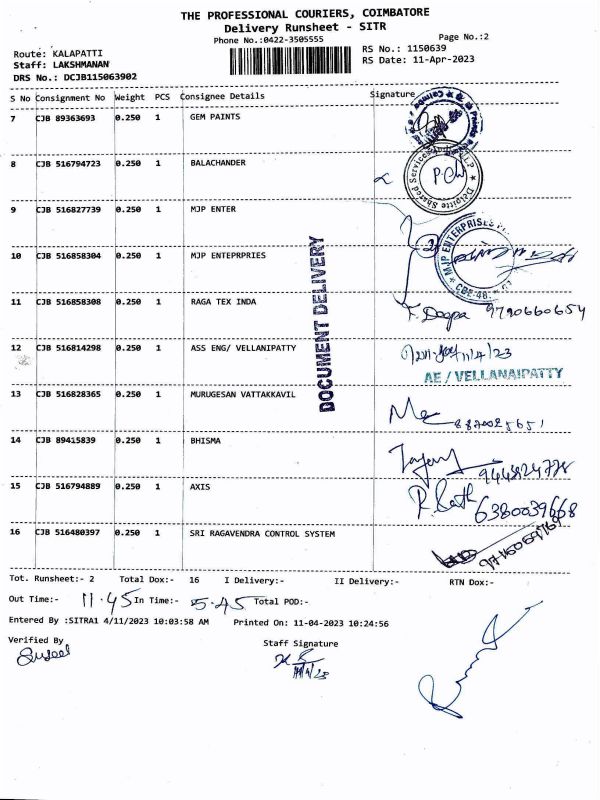 THE PROFESSIONAL COURIERS, COIMBATORE
Delivery Runsheet - SITR
Phone No.:0422-3505555
Page No.:2
Route: KALAPATTI
RS No.: 1150639
Staff: LAKSHMANAN
RS Date: 11-Apr-2023
DRS No.: DCJB115063902
S No Consignment No Weight PCS Consignee Details Signature
7 CJB 89363693 0.250 1 GEM PAINTS
8 CJB 516794723 0.250 1 BALACHANDER
Deloitte Shared Services
9 CJB 516827739 0.250 1 MJP ENTER
10 CJB 516858304 0.250 1 MJP ENTEPRPRIES
MJP ENTERPRISES
DOCUMENT DELIVERY
11 CJB 516858308 0.250 1 RAGA TEX INDA
Deepa 9790660654
12 CJB 516814298 0.250 1 ASS ENG/ VELLANIPATTY
11/4/23
AE / VELLANAIPATTY
13 CJB 516828365 0.250 1 MURUGESAN VATTAKKAVIL
14 CJB 89415839 0.250 1 BHISMA
15 CJB 516794889 0.250 1 AXIS
6380039668
16 CJB 516480397 0.250 1 SRI RAGAVENDRA CONTROL SYSTEM
Tot. Runsheet:- 2 Total Dox:- 16 I Delivery:- II Delivery:- RTN Dox:-
Out Time:- 11.45 In Time:- 5.45 Total POD:-
Entered By :SITRA1 4/11/2023 10:03:58 AM Printed On: 11-04-2023 10:24:56
Verified By
Staff Signature